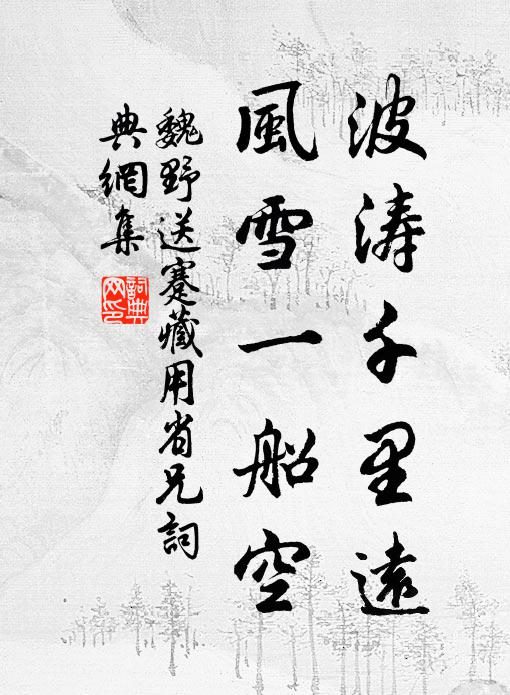 波濤千里遠
風雪一船空
魏野送蹇藏用省兄詞
典網集
詞典
网印